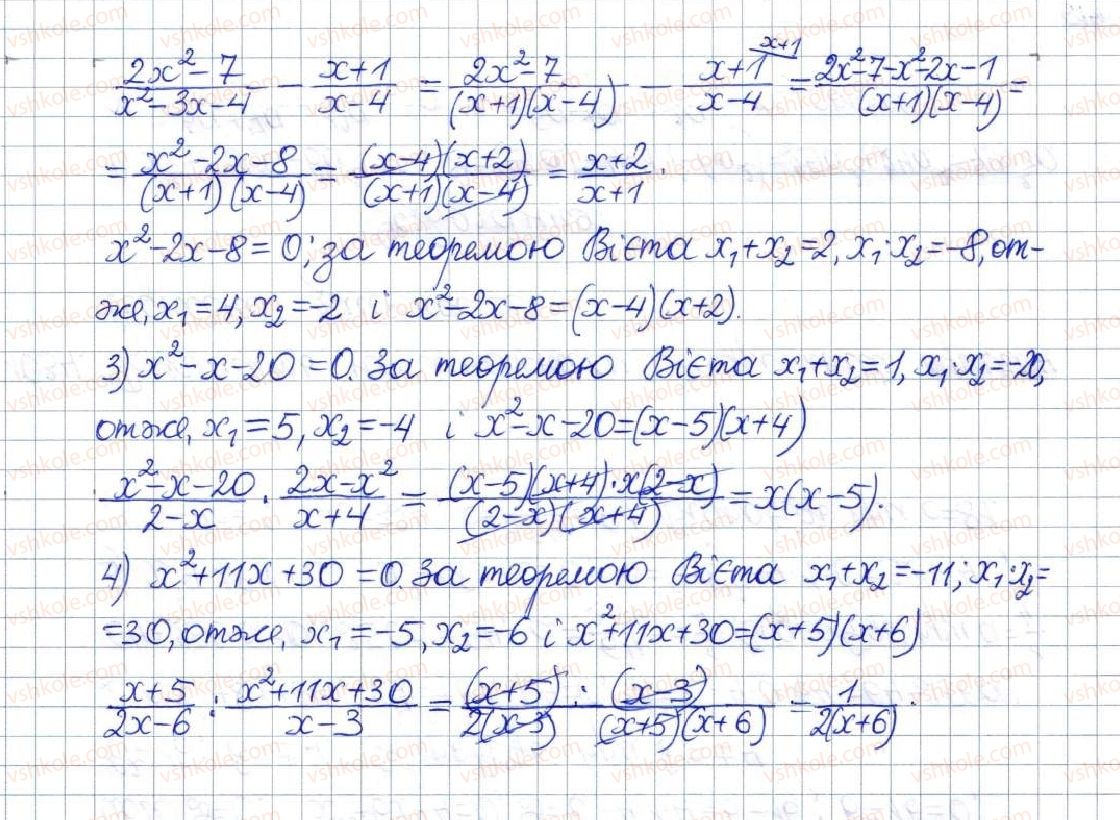 (2x²-7)/(x²-3x-4) - (x+1)/(x-4) = (2x²-7)/((x+1)(x-4)) - (x+1)/(x-4) ^(x+1) = (2x²-7-x²-2x-1)/((x+1)(x-4)) =
= (x²-2x-8)/((x+1)(x-4)) = ((x-4)(x+2))/((x+1)(x-4)) = (x+2)/(x+1).
x²-2x-8=0; за теоремою Вієта x₁+x₂=2, x₁·x₂=-8, от-
же, x₁=4, x₂=-2 і x²-2x-8=(x-4)(x+2).
3) x²-x-20=0. За теоремою Вієта x₁+x₂=1, x₁·x₂=-20,
отже, x₁=5, x₂=-4 і x²-x-20=(x-5)(x+4)
(x²-x-20)/(2-x) · (2x-x²)/(x+4) = ((x-5)(x+4)·x(2-x))/((2-x)(x+4)) = x(x-5).
4) x²+11x+30=0. За теоремою Вієта x₁+x₂=-11; x₁·x₂=
=30, отже, x₁=-5, x₂=-6 і x²+11x+30=(x+5)(x+6)
(x+5)/(2x-6) : (x²+11x+30)/(x-3) = (x+5)/(2(x-3)) : (x-3)/((x+5)(x+6)) = 1/(2(x+6)).
vshkole.com